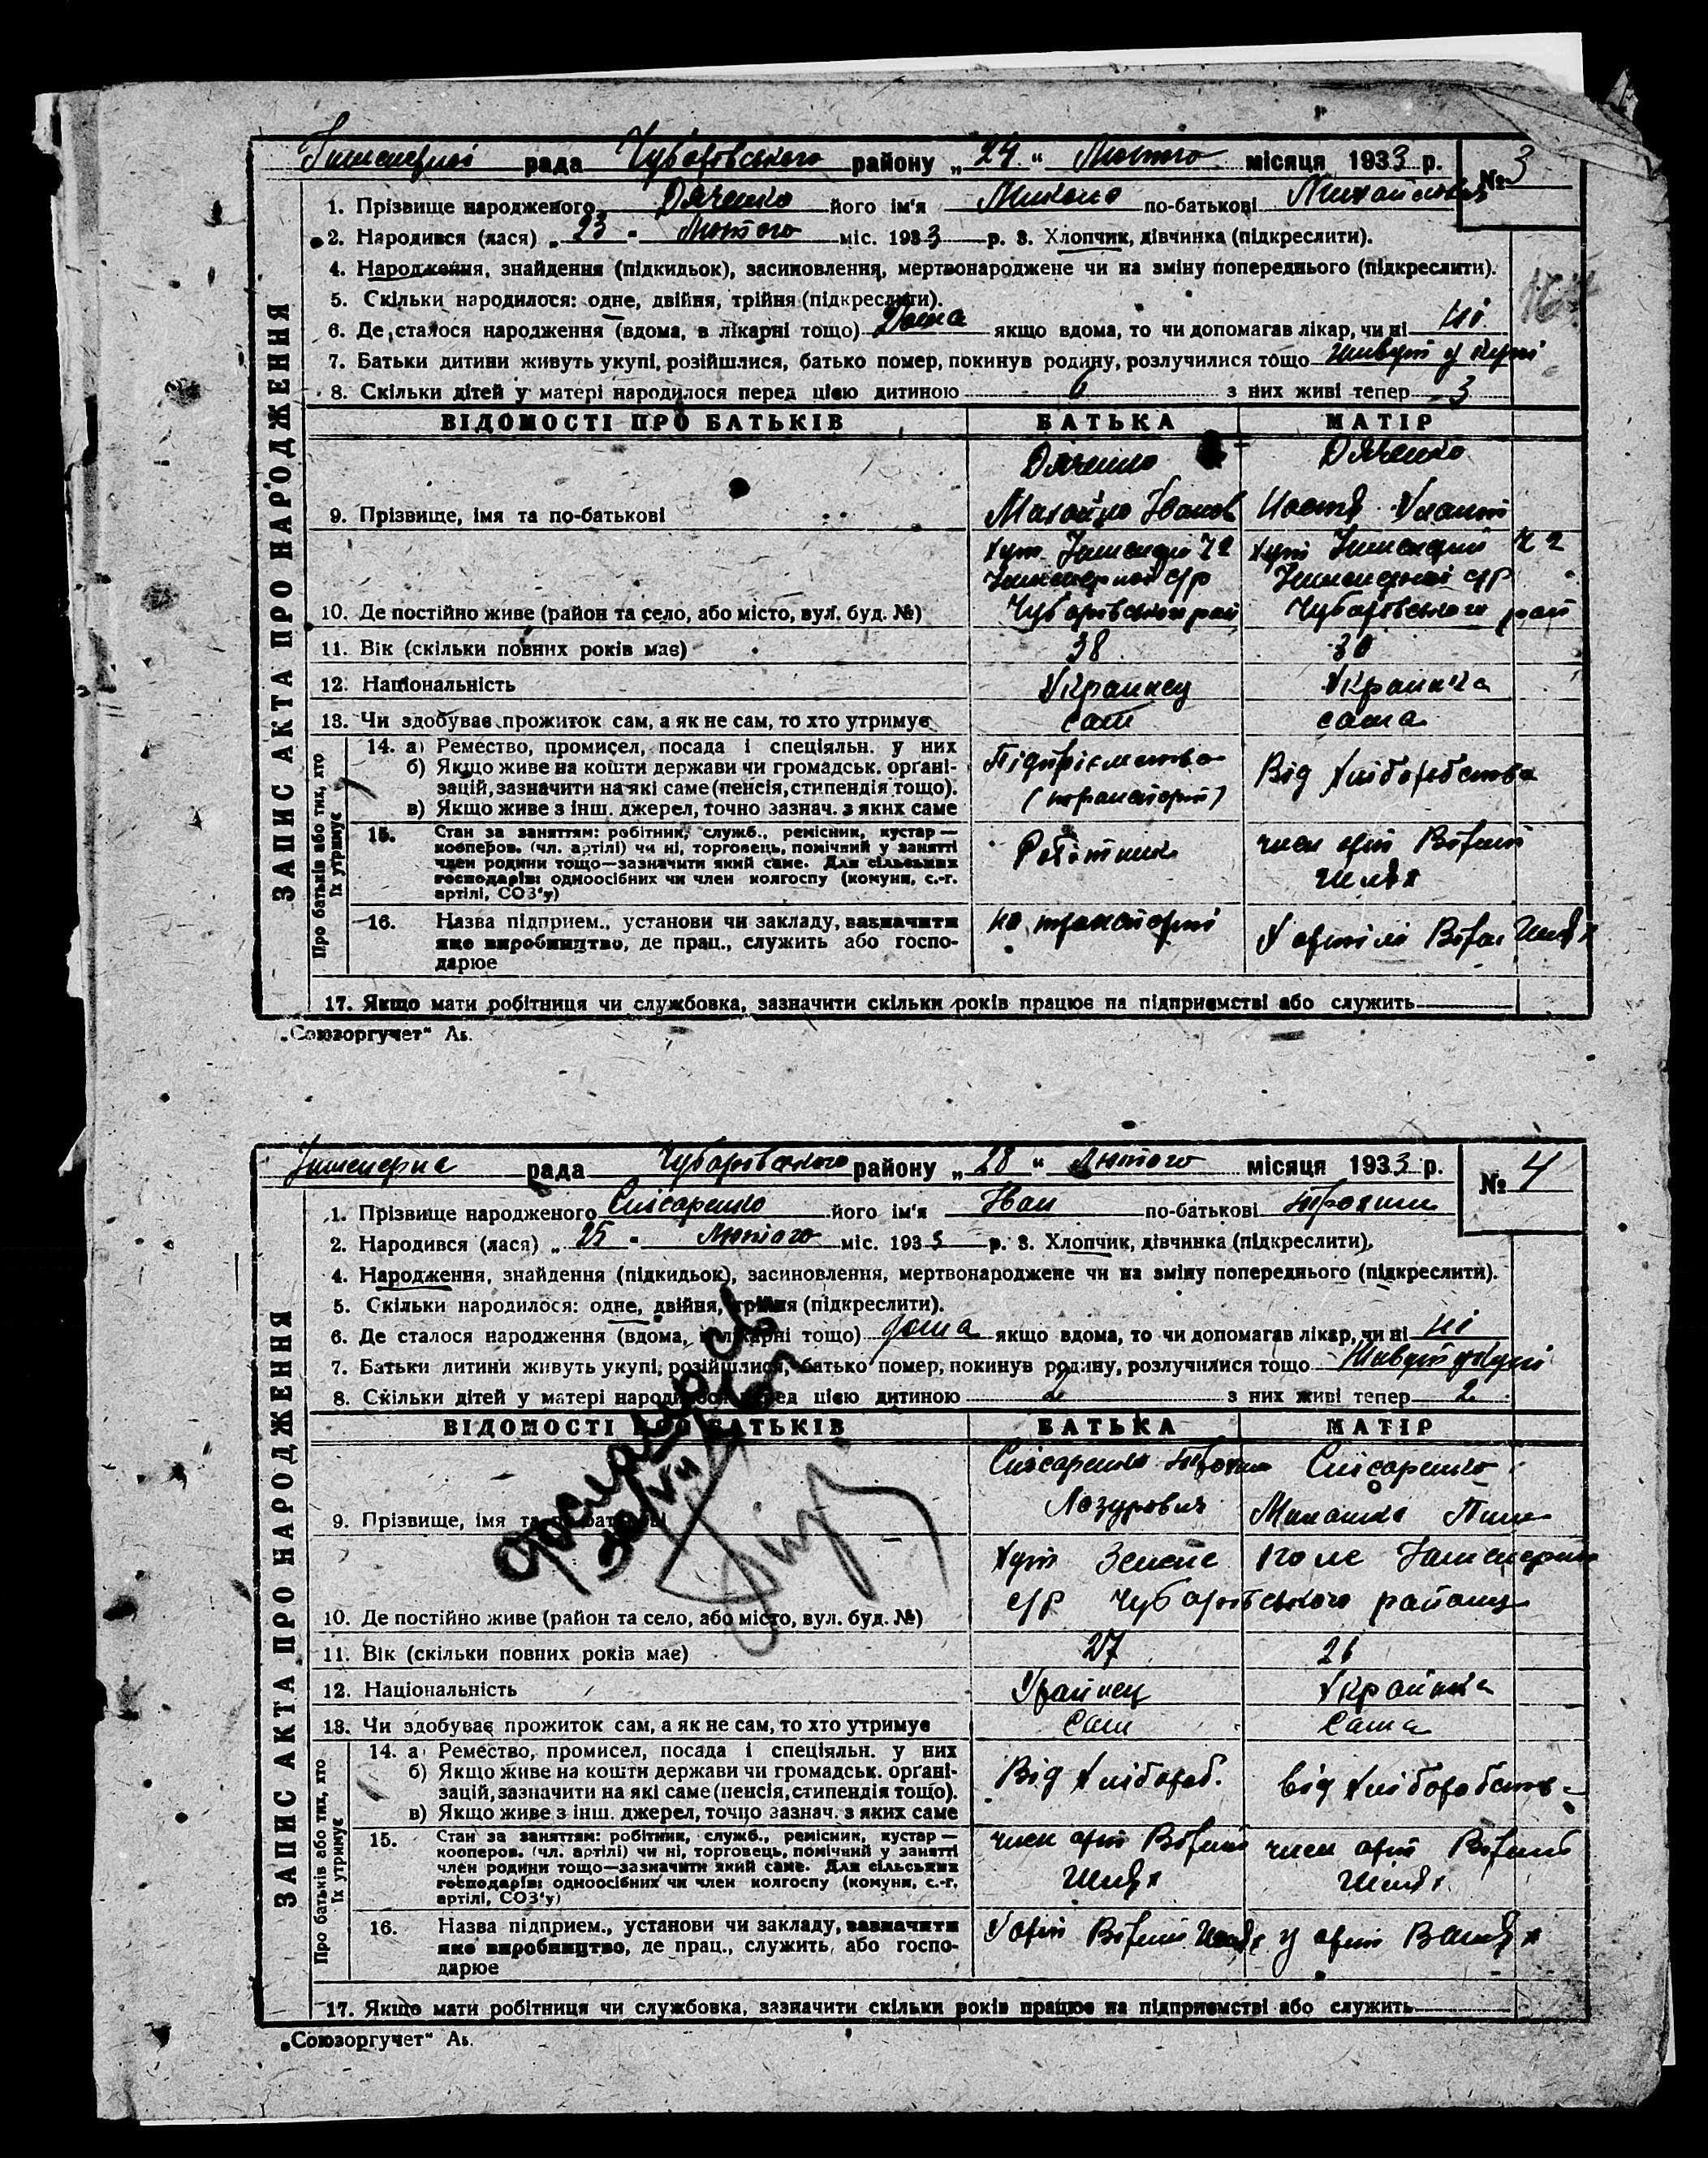 рада Чубаровського району „24“ Лютого місяця 1933 р. № 3
ЗАПИС АКТА ПРО НАРОДЖЕННЯ
1. Прізвище народженого Дяченко його ім'я Микола по-батькові Михайлович
2. Народився (лася) „23" Лютого міс. 1933 р. 3. Хлопчик, дівчинка (підкреслити).
4. Народження, знайдення (підкидьок), засиновлення, мертвонароджене чи на зміну попереднього (підкреслити).
5. Скільки народилося: одне, двійня, трійня (підкреслити).
6. Де сталося народження (вдома, в лікарні тощо) Дома якщо вдома, то чи допомагав лікар, чи ні ні
7. Батьки дитини живуть укупі, розійшлися, батько помер, покинув родину, розлучилися тощо живут у купі
8. Скільки дітей у матері народилося перед цією дитиною 6 з них живі тепер 3
ВІДОМОСТІ ПРО БАТЬКІВ БАТЬКА МАТІР
Дяченко Дяченко
9. Прізвище, імя та по-батькові Михайло Іванов Настя
10. Де постійно живе (район та село, або місто, вул. буд. №) Чубаровського рай Чубаровського рай
11. Вік (скільки повних років має) 38 30
12. Національність Украинец Украинка
13. Чи здобуває прожиток сам, а як не сам, то хто утримує сам сама
Про батьків або тих, хто їх утримує
14. а) Ремество, промисел, посада і спеціяльн. у них
б) Якщо живе на кошти держави чи громадськ. органі-
зацій, зазначити на які саме (пенсія, стипендія тощо).
в) Якщо живе з інш. джерел, точно зазнач. з яких саме
Підприємства Від хліборобства
15. Стан за заняттям: робітник, служб., ремісник, кустар —
кооперов. (чл. артілі) чи ні, торговець, помічний у занятті
член родини тощо—зазначити який саме. Для сільських
господарів: одноосібних чи член колгоспу (комуни, с.-г.
артілі, СОЗ'у)
Роботник член арт Вірний
Шлях
16. Назва підприєм., установи чи закладу, зазначити
яке виробництво, де прац., служить або госпо-
дарює
на транспорті У артілі Вірни Шлях
17. Якщо мати робітниця чи службовка, зазначити скільки років працює на підприємстві або служить
„Союзоргучет“ Ав.
рада Чубаровського району „28“ Лютого місяця 1933 р. № 4
ЗАПИС АКТА ПРО НАРОДЖЕННЯ
1. Прізвище народженого Слісаренко його ім'я Іван по-батькові Трохим
2. Народився (лася) „25" Лютого міс. 1933 р. 3. Хлопчик, дівчинка (підкреслити).
4. Народження, знайдення (підкидьок), засиновлення, мертвонароджене чи на зміну попереднього (підкреслити).
5. Скільки народилося: одне, двійня, трійня (підкреслити).
6. Де сталося народження (вдома, в лікарні тощо) дома якщо вдома, то чи допомагав лікар, чи ні ні
7. Батьки дитини живуть укупі, розійшлися, батько помер, покинув родину, розлучилися тощо Живут укупі
8. Скільки дітей у матері народилося перед цією дитиною 2 з них живі тепер 2
ВІДОМОСТІ ПРО БАТЬКІВ БАТЬКА МАТІР
Слісаренко Трохим Слісаренко
9. Прізвище, імя та по-батькові Лазурович
Хут Зелене поле
с/р Чубаровського району
10. Де постійно живе (район та село, або місто, вул. буд. №)
11. Вік (скільки повних років має) 27 26
12. Національність Украинка
13. Чи здобуває прожиток сам, а як не сам, то хто утримує Сам Сама
Про батьків або тих, хто їх утримує
14. а) Ремество, промисел, посада і спеціяльн. у них
б) Якщо живе на кошти держави чи громадськ. органі-
зацій, зазначити на які саме (пенсія, стипендія тощо).
в) Якщо живе з інш. джерел, точно зазнач. з яких саме
Від хлібороб. від хліборобств
15. Стан за заняттям: робітник, служб., ремісник, кустар —
кооперов. (чл. артілі) чи ні, торговець, помічний у занятті
член родини тощо—зазначити який саме. Для сільських
господарів: одноосібних чи член колгоспу (комуни, с.-г.
артілі, СОЗ'у)
член арт Вірний член арт Вірний
Шлях Шлях
16. Назва підприєм., установи чи закладу, зазначити
яке виробництво, де прац., служить або госпо-
дарює
У арт Вірний Шлях у арт В Шлях
17. Якщо мати робітниця чи службовка, зазначити скільки років працює на підприємстві або служить
„Союзоргучет“ Ав.